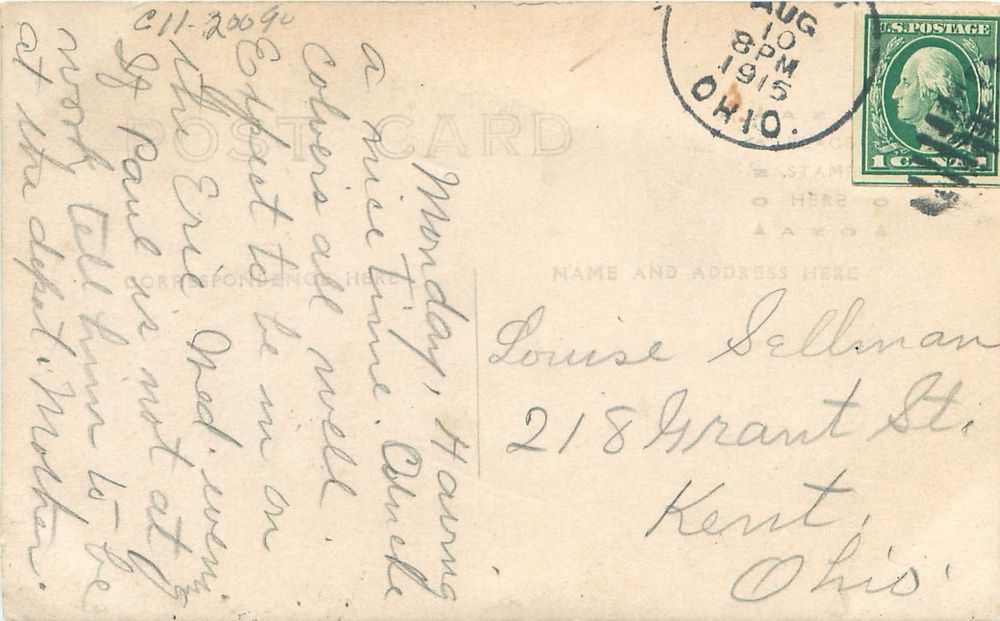 C11-20090
AUG
10
8PM
1915
OHIO.
U.S. POSTAGE
1 CENT 1
POST CARD
STAMP
HERE
AZO
CORRESPONDENCE HERE
NAME AND ADDRESS HERE
Monday, Having
a nice Time.
Colvers all well
Expect to be in on
the Erie Wed. even.
If Paul is not at
work Tell him to be
at the depot. Mother.
Louise Sellman
218 Grant St.
Kent,
Ohio.